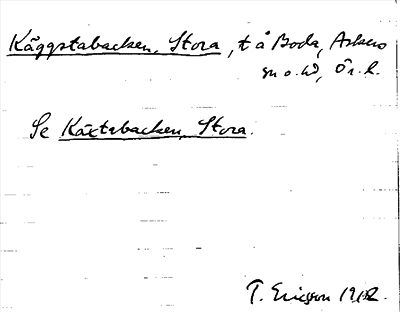 Käggstabacken, Stora, t å Boda, Askers
sn o. hd, Ör. l.
Se Käxtabacken, Stora.
T. Ericsson